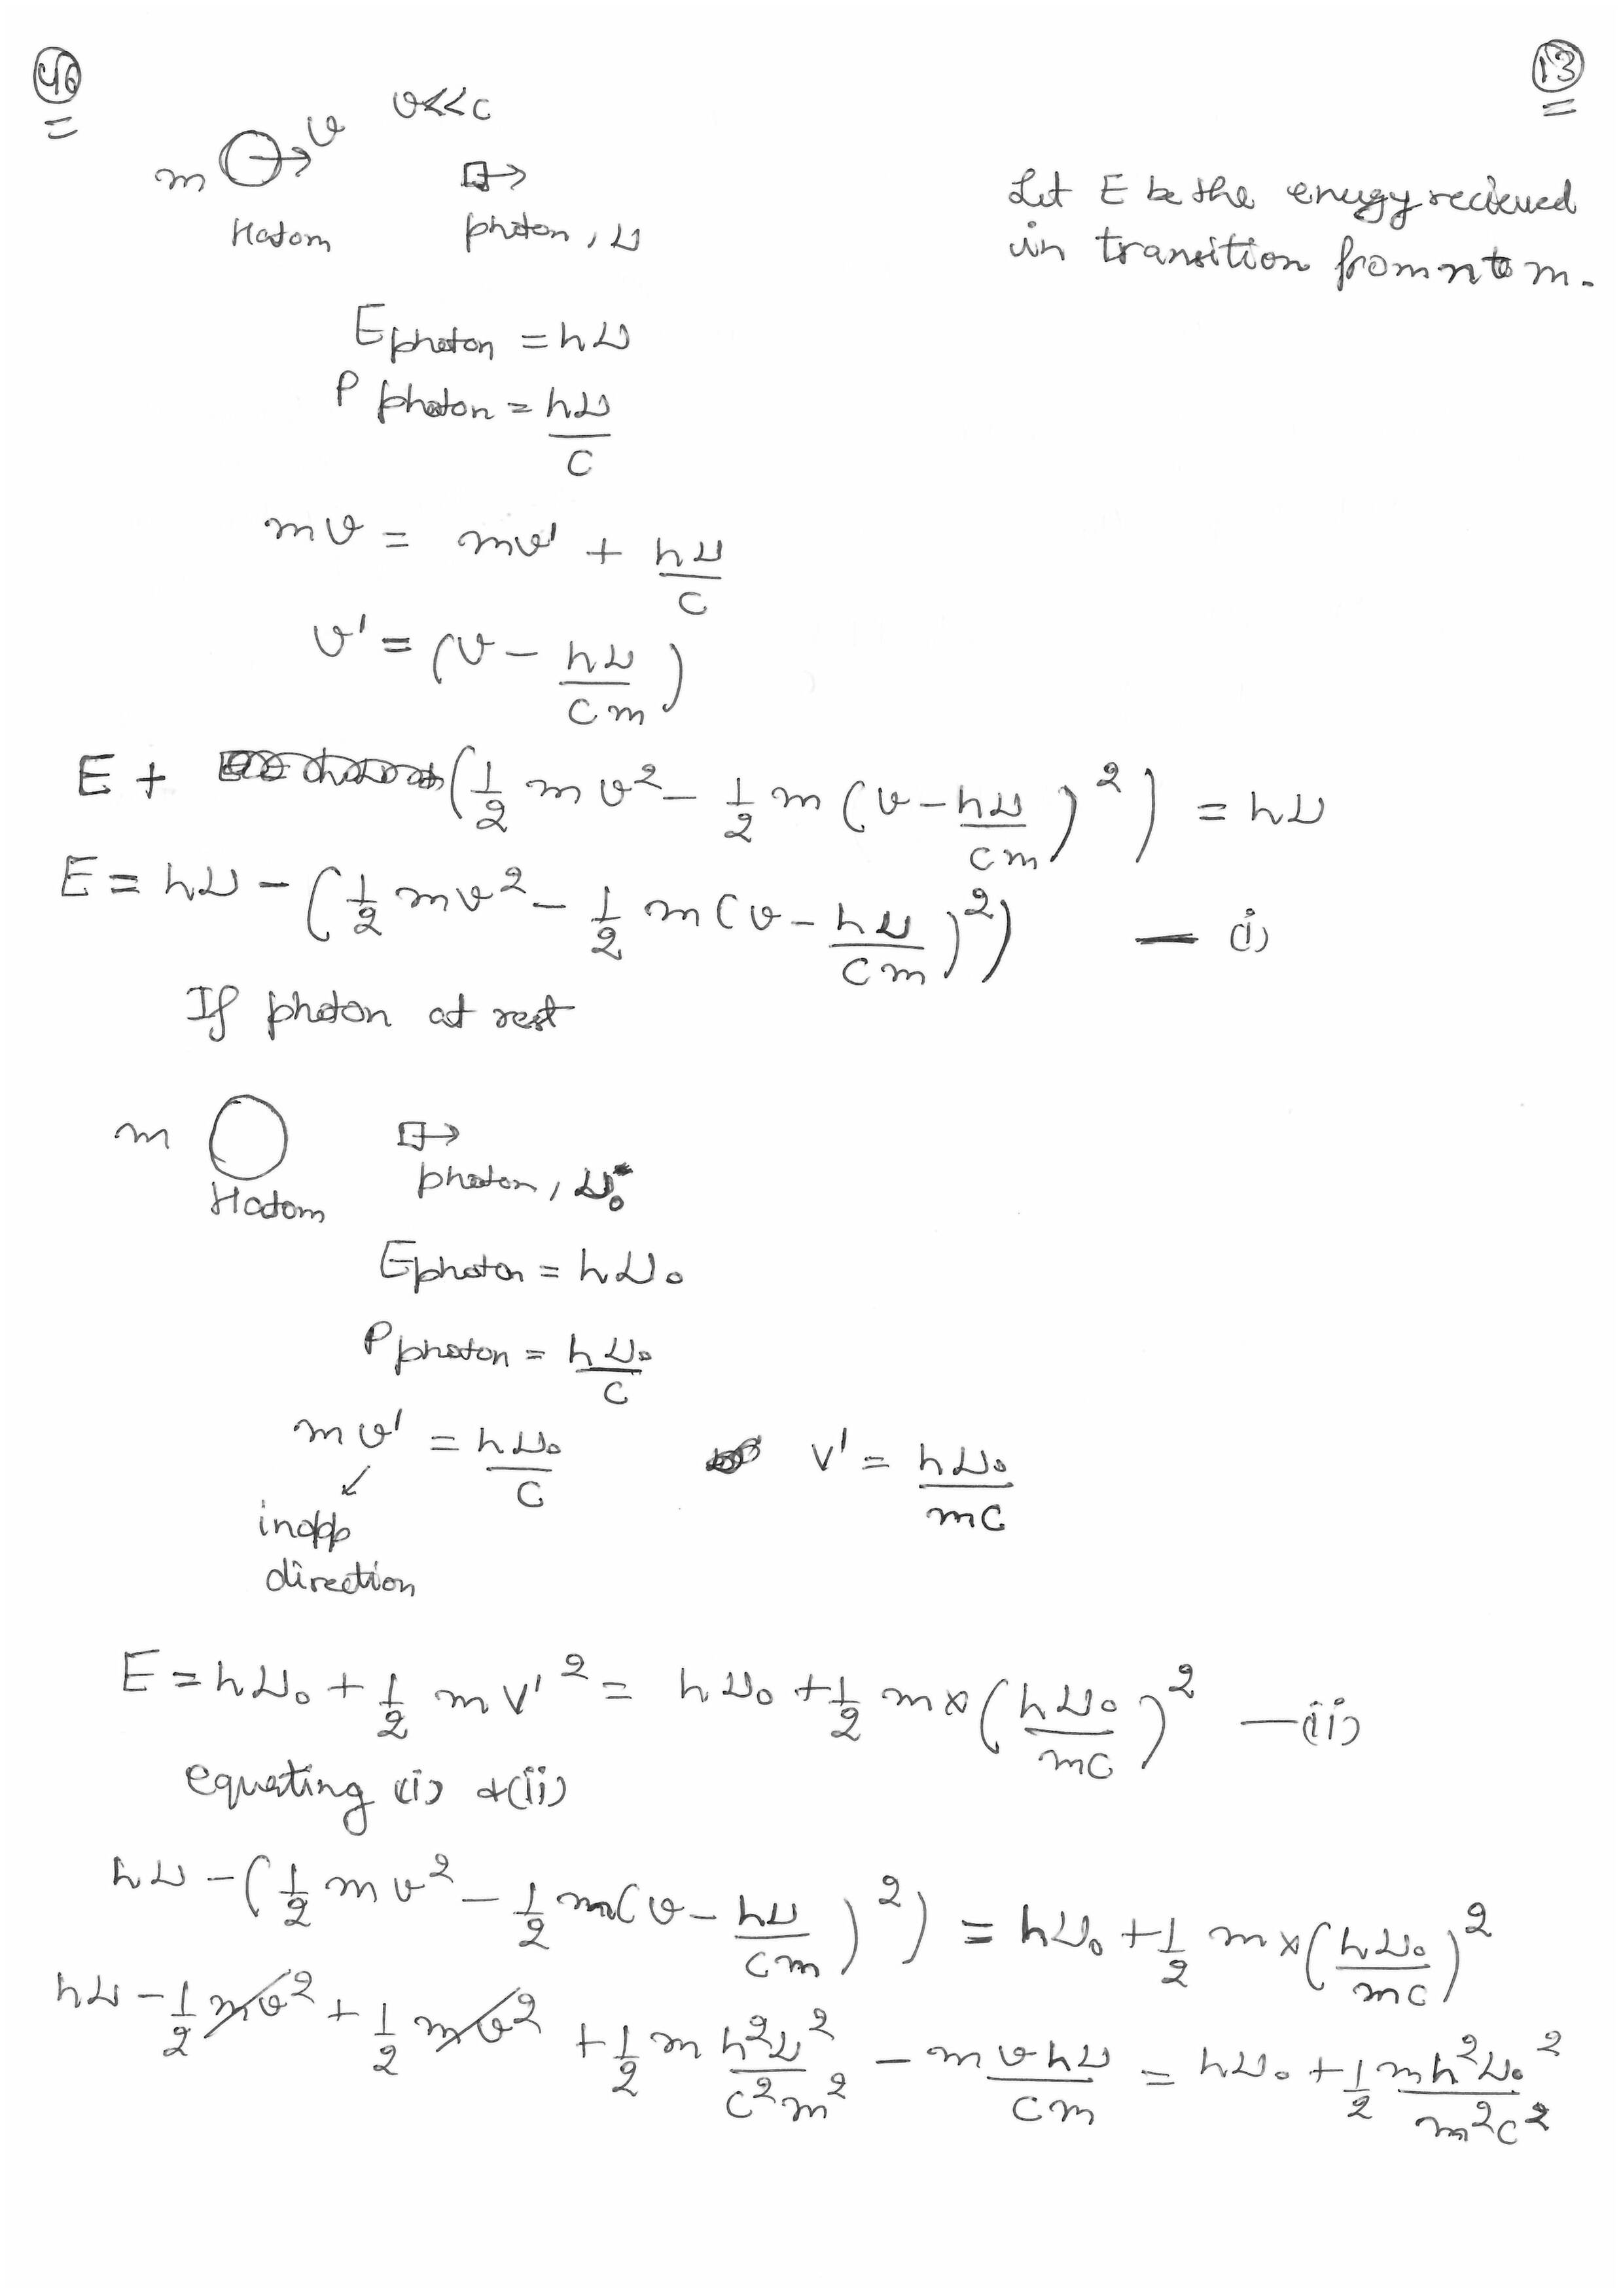 46
13
v<<c
v
m
H atom
photon, ν
Let E be the energy recieved
in transition from n to m.
E photon = hν
P photon = hν/c
mv = mv' + hν/c
v' = (v - hν/cm)
E + (1/2 mv² - 1/2 m(v - hν/cm)²) = hν
E = hν - (1/2 mv² - 1/2 m(v - hν/cm)²) — (i)
If photon at rest
m
H atom
photon, ν₀
E photon = hν₀
P photon = hν₀/c
mv' = hν₀/c v' = hν₀/mc
in opp
direction
E = hν₀ + 1/2 mv'² = hν₀ + 1/2 m × (hν₀/mc)² — (ii)
equating (i) & (ii)
hν - (1/2 mv² - 1/2 m(v - hν/cm)²) = hν₀ + 1/2 m × (hν₀/mc)²
hν - 1/2 mv² + 1/2 mv² + 1/2 m h²ν²/c²m² - mvhν/cm = hν₀ + 1/2 mh²ν₀²/m²c²